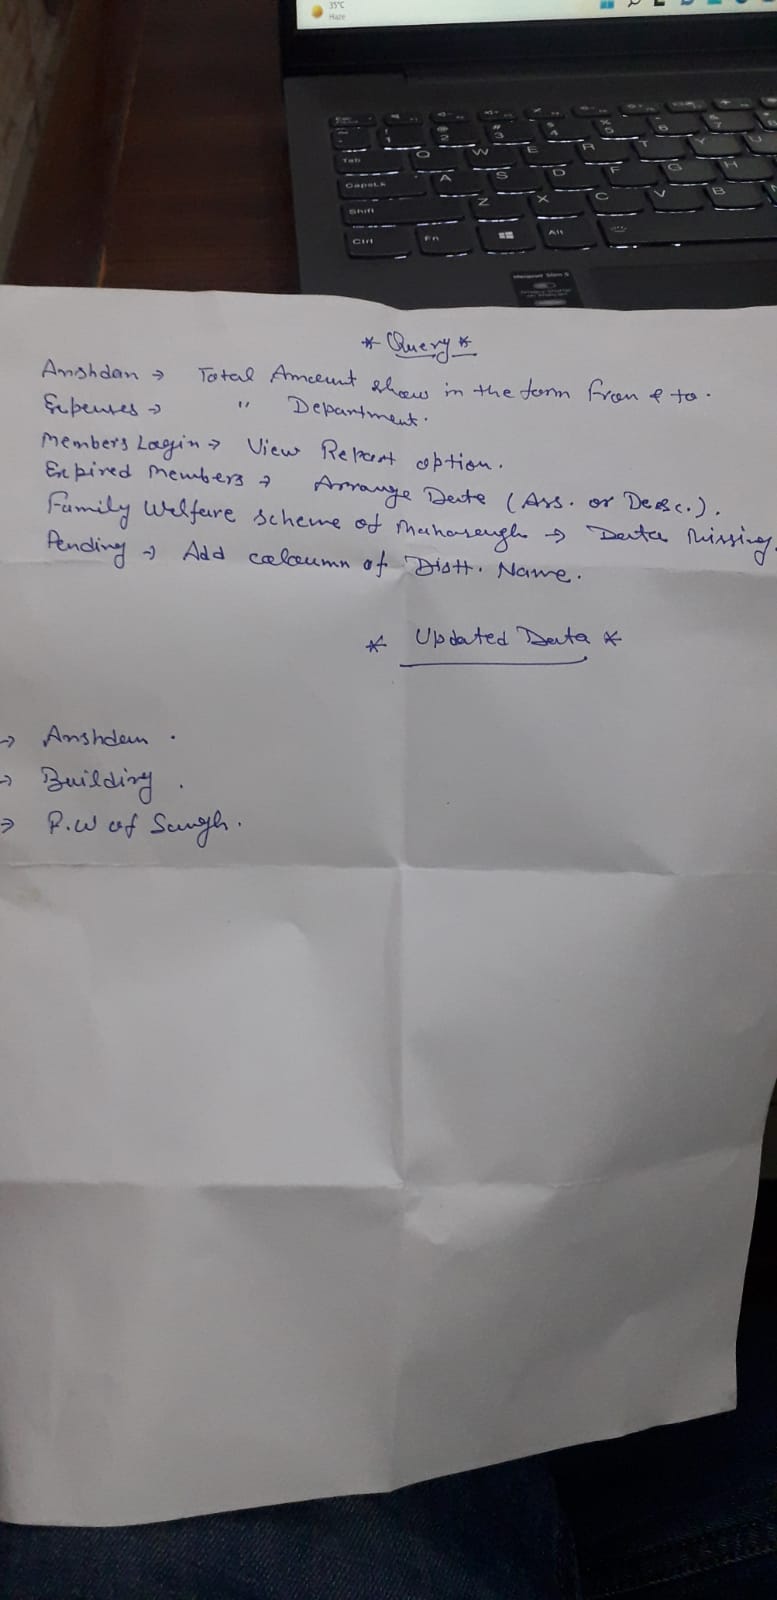 35°C
Haze
Tab
Q W E R T Y U
CapsLk A S D F G H
Shift Z X C V B
Ctrl Fn Alt
* Query *
Anshdan → Total Amount show in the form from & to.
Expenses → " Department.
Members Login → View Report option.
Expired Members → Arrange Date (Ass. or Desc.).
Family Welfare scheme of Mahasangh → Data Missing.
Pending → Add coloumn of Distt. Name.
* Updated Data *
→ Anshdan .
→ Building .
→ F.W of Sangh.